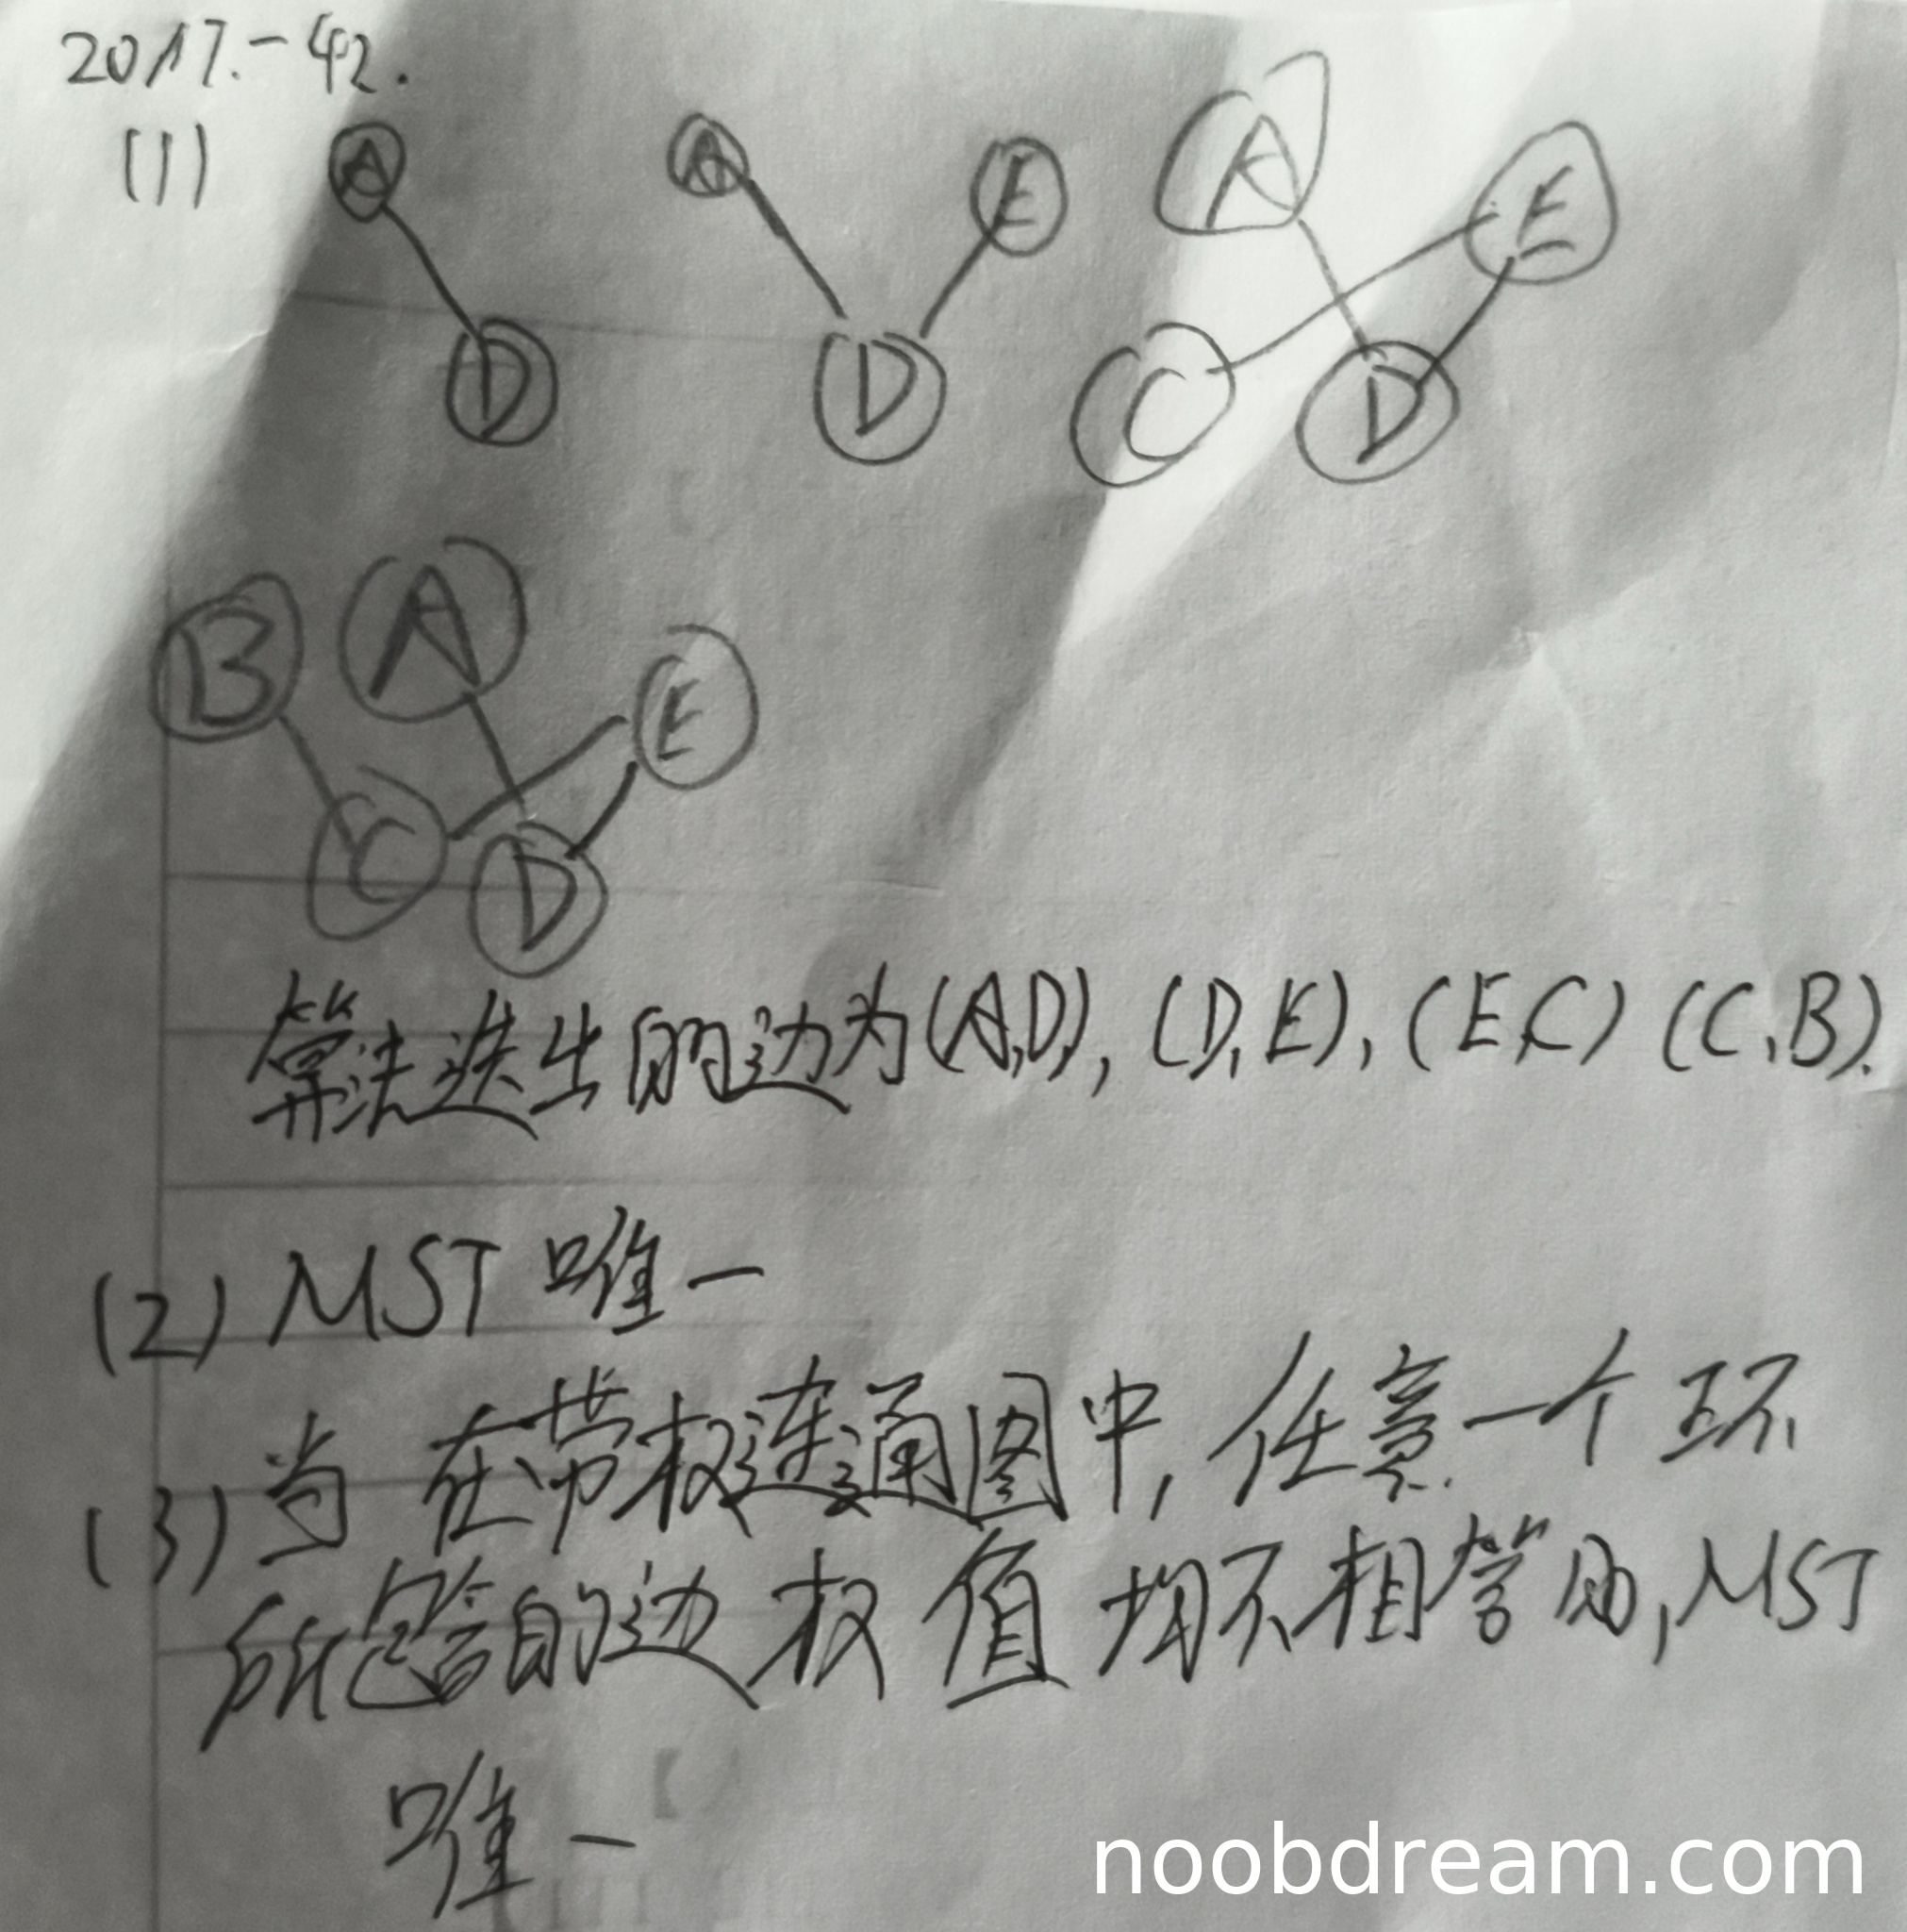 2017.-42.
(1)
A A E A E
D D C D
B A E
C D
算法选出的边为(A,D), (D,E), (E,C) (C,B).
(2) MST 唯一
(3) 当 在带权连通图中, 任意一个环
所包含的边 权 值 均不相等 时, MST
唯一
noobdream.com